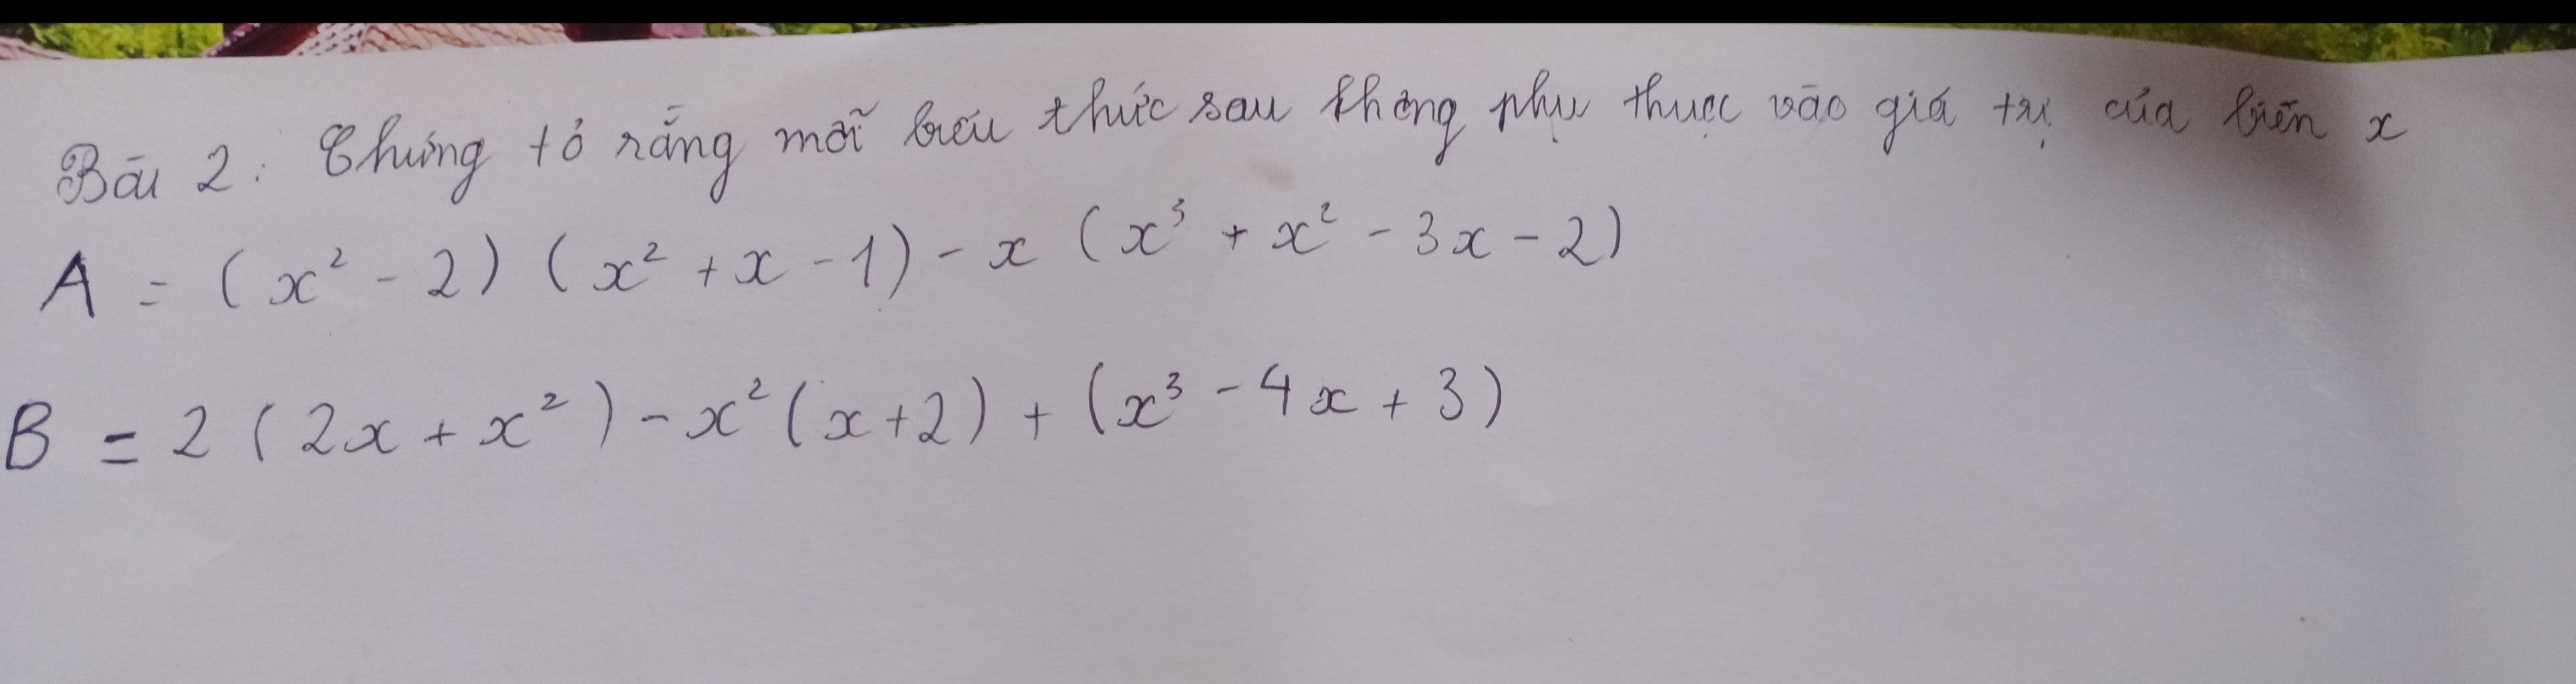 Bài 2: Chứng tỏ rằng mỗi biểu thức sau không phụ thuộc vào giá trị của biến x
A = (x² - 2) (x² + x - 1) - x (x³ + x² - 3x - 2)
B = 2 (2x + x²) - x² (x + 2) + (x³ - 4x + 3)